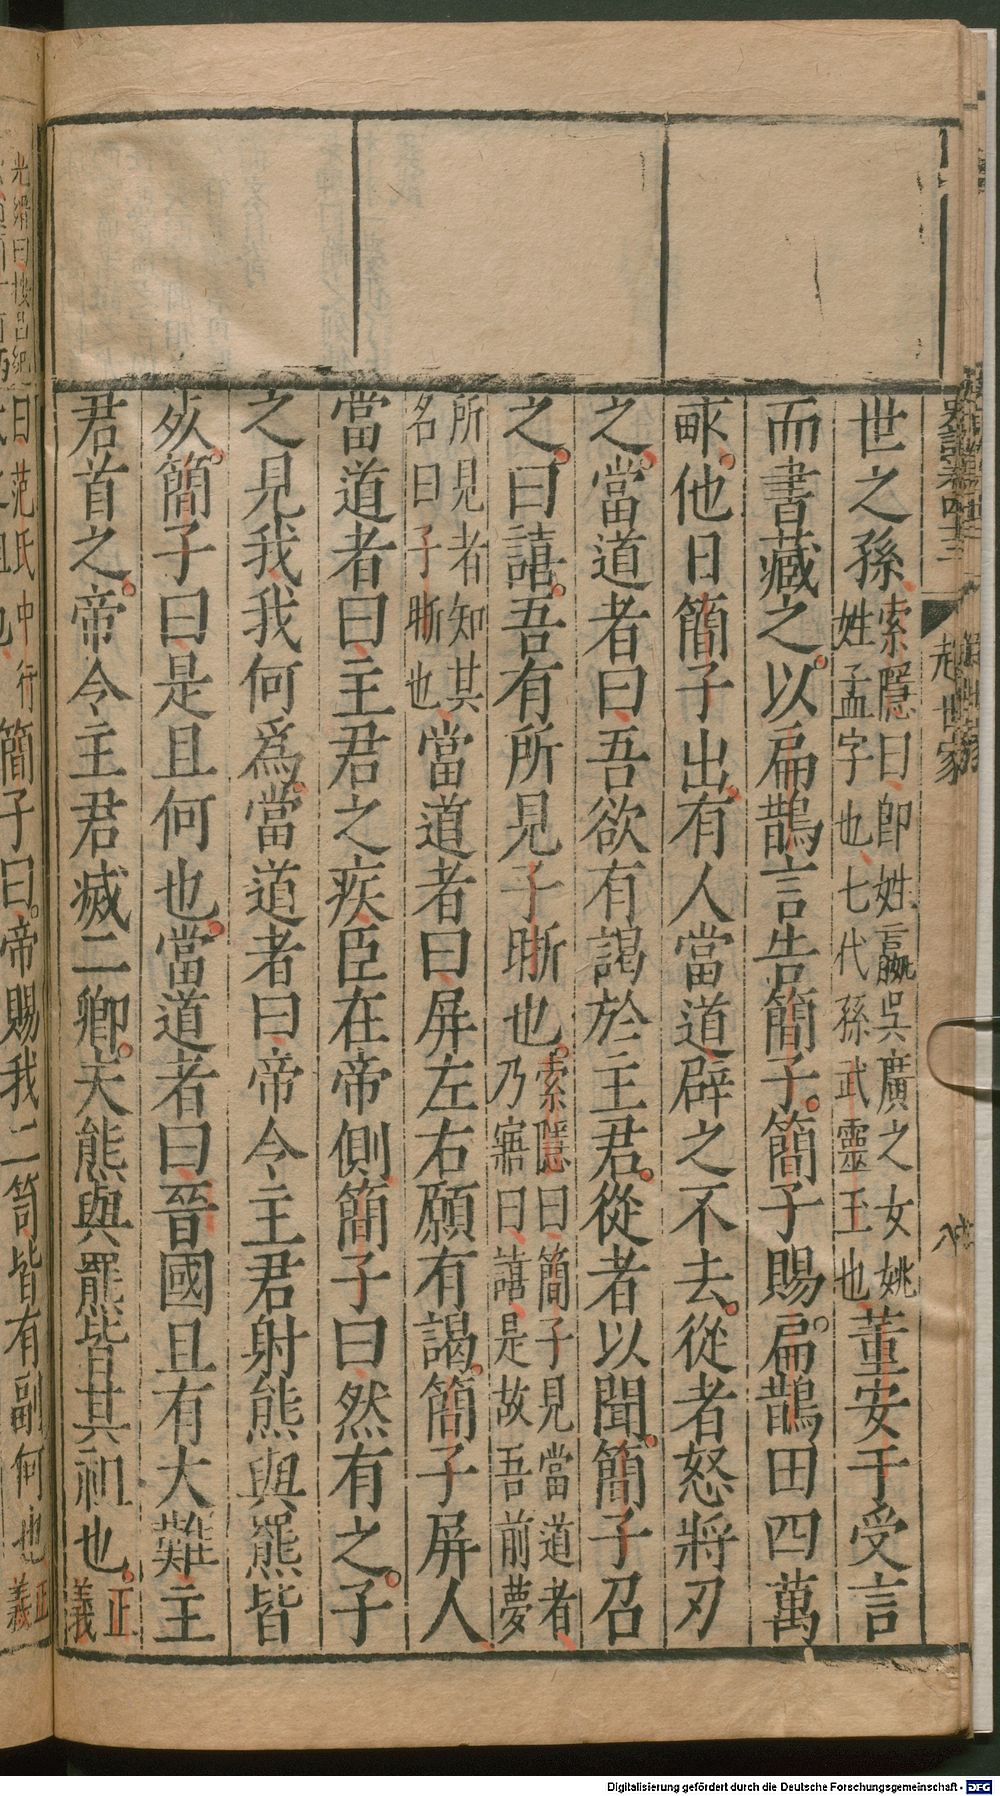 史記卷四十三
趙世家
世之孫索隱曰即姓嬴吳廣之女姚姓孟字也七代孫武靈王也董安于受言
而書藏之以扁鵲言告簡子簡子賜扁鵲田四萬
畝他日簡子出有人當道辟之不去從者怒將刃
之當道者曰吾欲有謁於主君從者以聞簡子召
之曰譆吾有所見子晣也索隱曰簡子見當道者乃寤曰譆是故吾前夢
所見者知其名曰子晣也當道者曰屏左右願有謁簡子屏人
當道者曰主君之疾臣在帝側簡子曰然有之子
之見我我何爲當道者曰帝令主君射熊與羆皆
死簡子曰是且何也當道者曰晉國且有大難主
君首之帝令主君滅二卿夫熊與羆皆其祖也正義
曰范氏中行
簡子曰帝賜我二笥皆有副何也正義
Digitalisierung gefördert durch die Deutsche Forschungsgemeinschaft - DFG